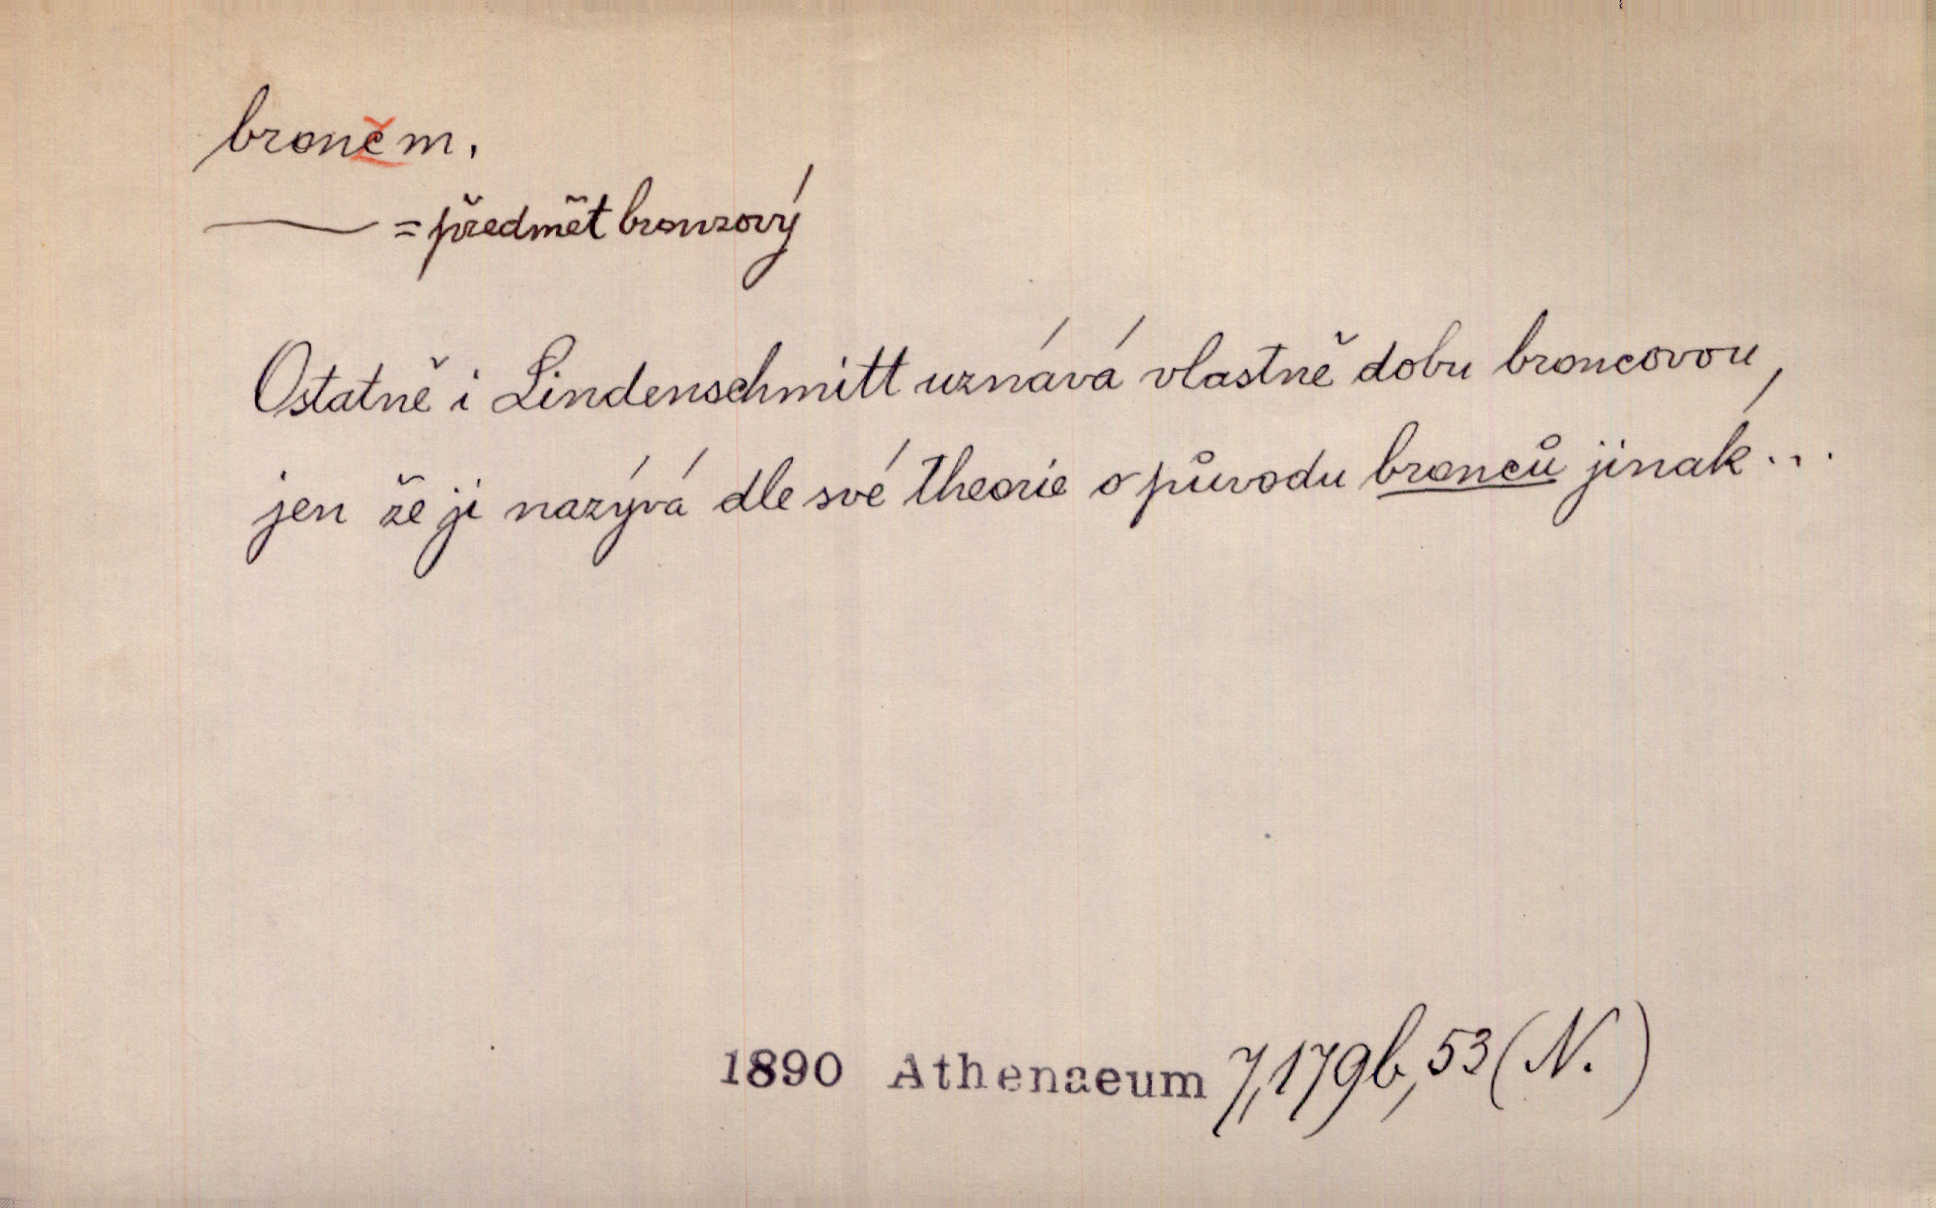 bronč m.
—— = předmět bronzový
Ostatně i Lindenschmitt uznává vlastně dobu broncovou,
jen že ji nazývá dle své theorie o původu bronců jinak...
1890 Athenaeum 7, 179b, 53 (N.)